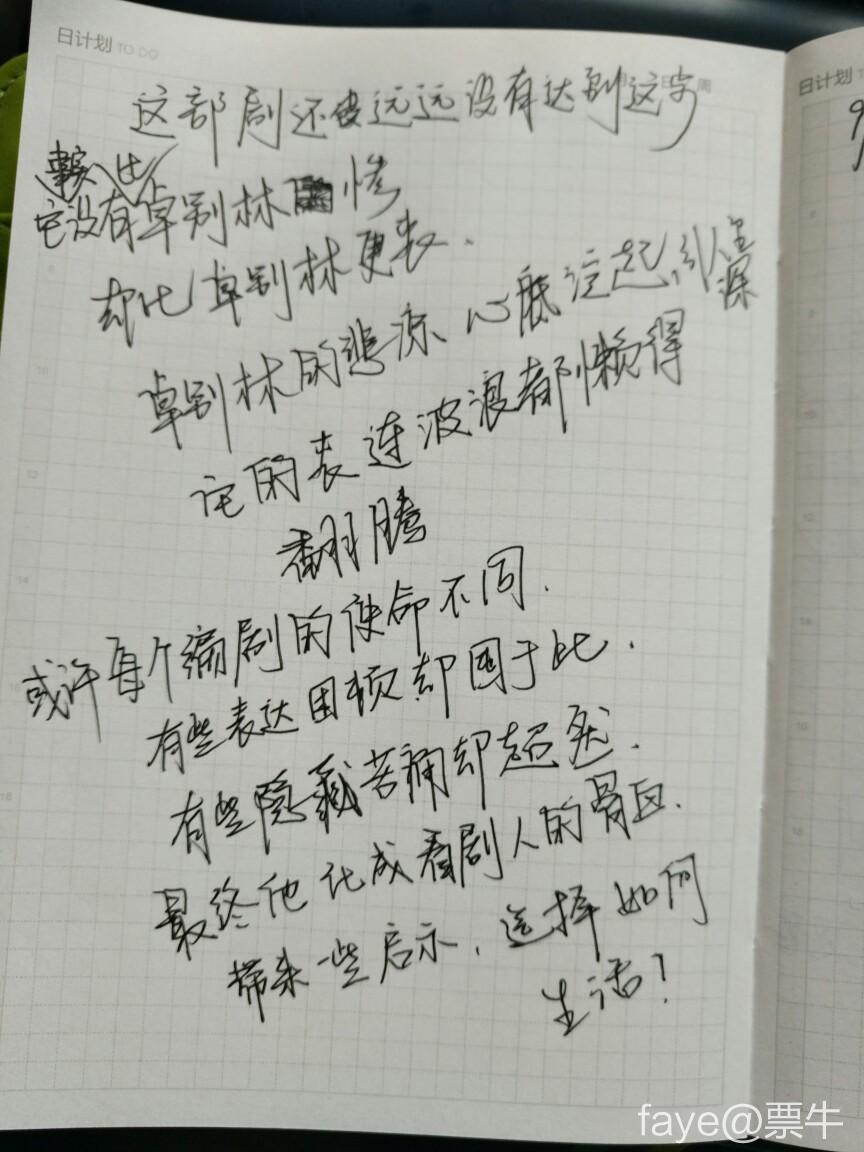 日计划 TO DO
日 周
日计划 TO
这部剧还远远没有达到这字
它没有卓别林惨
却比卓别林更丧.
卓别林的悲凉 心底泛起 深
它的丧连波浪都懒得
翻腾
或许每个编剧的使命不同.
有些表达困顿却困于此.
有些隐藏苦痛却超然.
最终他化成看剧人的骨血.
带来一些启示,选择如何
生活!
faye@票牛